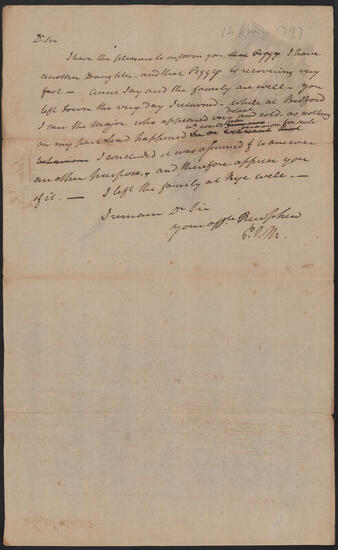 1797
Dr Sir
I have the pleasure to inform you that Peggy I have
another Daughter, and that Peggy is recovering very
fast. — Aunt Jay and the family are well — You
left Town the very day I returned — while at Bedford
I saw the Major who appeared very silent and cold, as nothing
on my part had happened to occasion such
behaviour I concluded it was assumed to answer
another purpose, and therefore apprise you
of it. — I left the family at Rye well. —
I remain Dr Sir
your afft. Nephew
P. J. M.